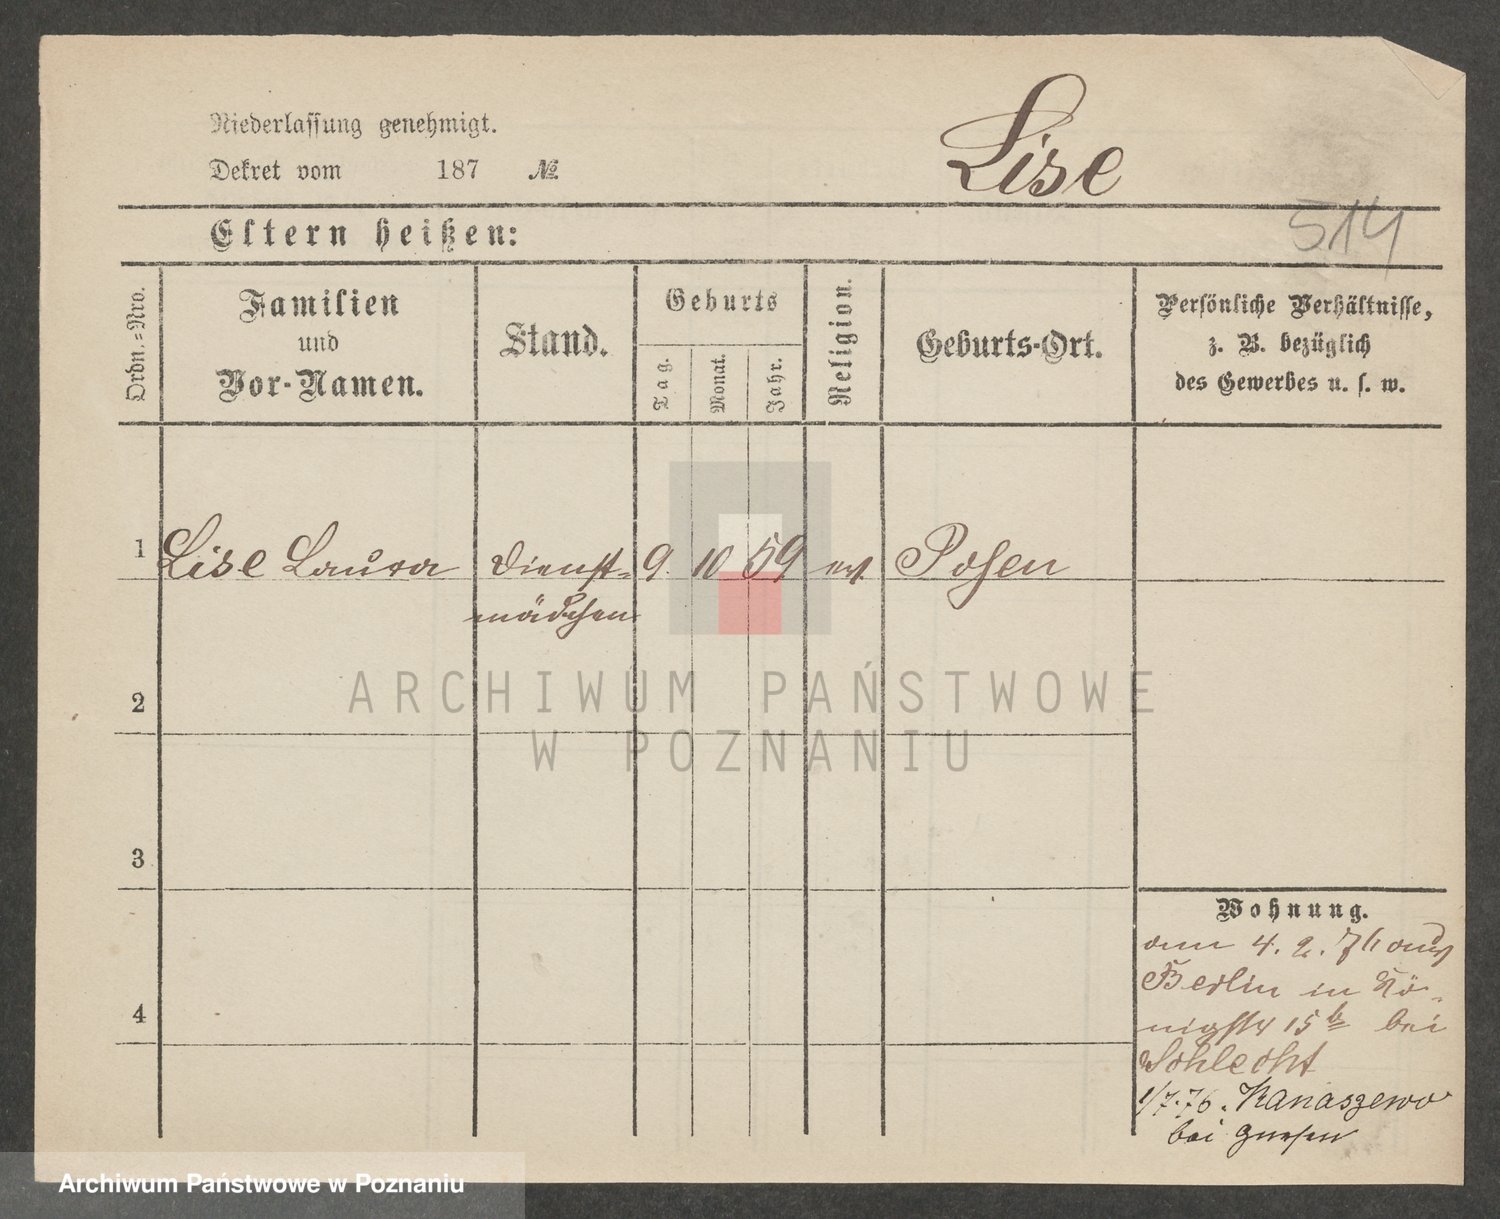 Niederlassung genehmigt.
Dekret vom 187 №
Lise
514
Eltern heißen:
Ordn.-Nro.
Familien
und
Vor-Namen.
Stand.
Geburts
Tag.
Monat.
Jahr.
Religion.
Geburts-Ort.
Persönliche Verhältnisse,
z. B. bezüglich
des Gewerbes u. s. w.
1 Lise Laura Dienst= 9. 10 59 ev. Posen
mädchen
2
3
4
Wohnung.
am 4. 2. 76 aus
Berlin in Kö-
nigstr 15 b bei
Schlecht
1/7.76. Kanaszewo
bei Gnesen
ARCHIWUM PAŃSTWOWE
W POZNANIU
Archiwum Państwowe w Poznaniu